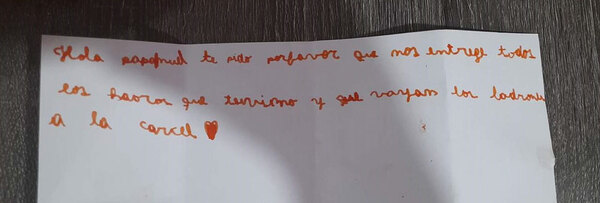 Hola papanuel te pido porfavor que nos entrege todos
los haoros que tuvimo y que vayan los ladrones
a la carcel